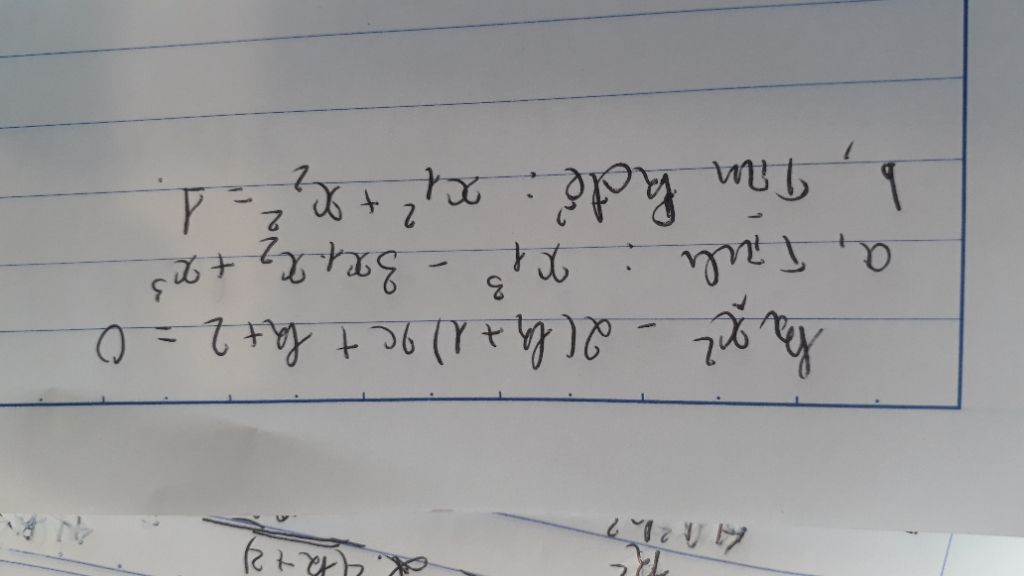 kx² - 2(k+1)x + k+2 = 0
a, Tính : x₁³ - 3x₁.x₂ + x³
b, Tìm k để : x₁² + x₂² = 1.
(k+2)